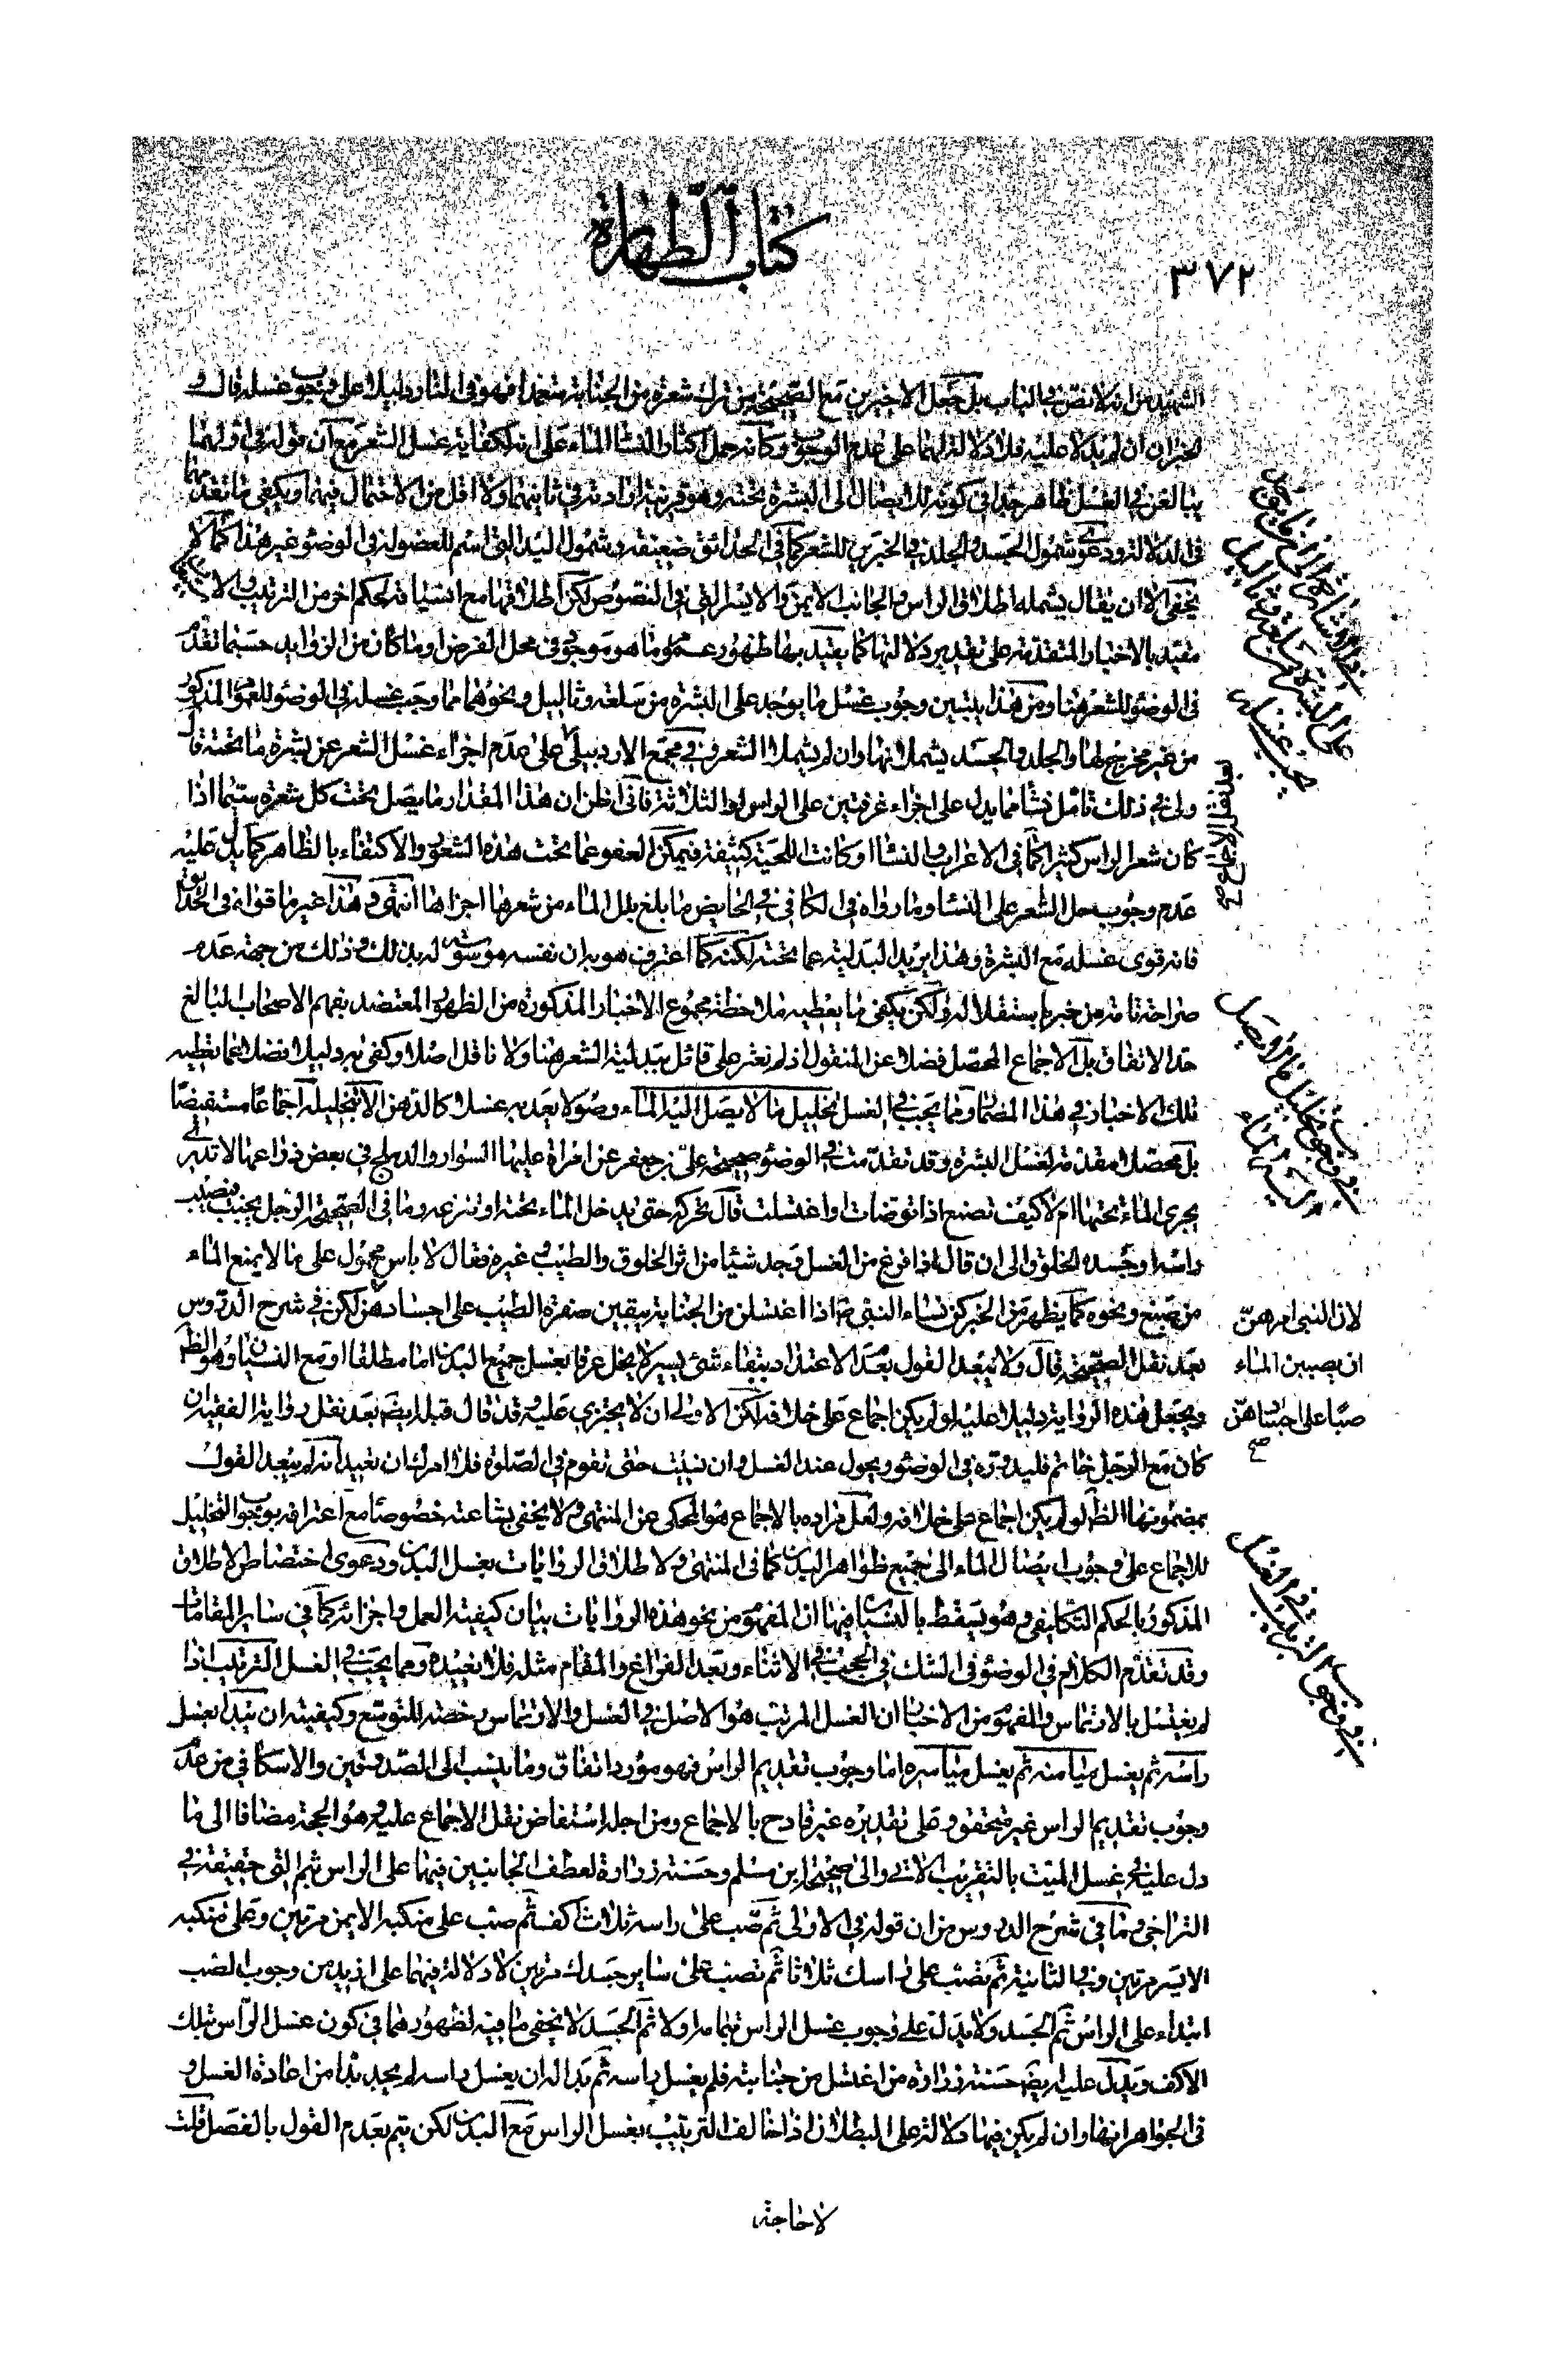 كتاب الطهارة
٣٧٢
الشهيد من انه لا نص في الباب بل جعل الاخيرين مع الصحيحة من ترك شعرة من الجنابة متعمدا فهو في النار دليلا على وجوب غسله قال و
الخبران ان لم يدلا عليه فلا دلالة لهما على عدم الوجوب وكانه حمل اكثار النساء الماء على انه لكفاية غسل الشعر مع ان قوله في اولهما
يبالغن في الغسل ظاهر جدا في كونه للايصال الى البشرة تحته وهو قرينة ارادته في ثانيهما ولا اقل من الاحتمال فيهما ويكفي ما تقدمهما
في الدلالة ودعوى شمول الجسد والجلد في الخبرين للشعر كما في الحدائق ضعيفة وشمول اليد التي اسم للعضو له في الوضوء غير هذا كما لا
يخفى الا ان يقال يشمله اطلاق الراس والجانب الايمن والايسر التي في النصوص لكن اطلاقها مع انسياقه لحكم اخر من الترتيب والا
مقيد بالاخبار المتقدمة على تقدير دلالتها كما يقيد بها ظهور عموم ما هو موجود في محل الفرض او ما كان من الزوايد حسبما تقدم
في الوضوء للشعر هنا ومن هذا يتبين وجوب غسل ما يوجد على البشرة من سلعة وثاليل ونحوهما مما وجب غسله في الوضوء للعموم المذكور
من غير مخرج لها والجلد والجسد يشملانها وان لم يشملا الشعر وفي مجمع الاردبيلي على عدم اجزاء غسل الشعر عن بشرة ما تحته قال
ولي في ذلك تامل نشا مما يدل على اجزاء غرفتين على الراس او الثلاثة فاني اظن ان هذا المقدار ما يصل تحت كل شعرة سيما اذا
كان شعر الراس كثيرا كما في الاعراب والنساء او كانت اللحية كثيفة فيمكن العفو عما تحت هذه الشعور والاكتفاء بالظاهر كما يدل عليه
عدم وجوب حل الشعر على النساء وما رواه في الكافي في الحايض ما بلغ بلل الماء من شعرها اجزاها انتهى وهذا غير ما قواه في الحدائق
فانه قوى غسله مع البشرة وهذا يريد البدلية عما تحته لكنه كما اعترف هو به ان نفسه موسوس له بذلك وذلك من جهة عدم
صراحة تامة من خبر ما يستقلا له ولكن يكفي ما يعطيه ملاحظة مجموع الاخبار المذكورة من الظهور المعتضد بفهم الاصحاب البالغ
حد الاتفاق بل الاجماع المحصل فضلا عن المنقول اذ لم نعثر على قائل ببدلية الشعر هنا ولا ناقل اصلا وكفى به دليلا فضلا عما يعطيه
تلك الاخبار في هذا المضمار ومما يجب في الغسل تخليل ما لا يصل اليه الماء وصولا يعد به غسلا كالدهن الا بتخليله اجماعا مستفيضا
بل محصلا مقدمة لغسل البشرة وقد تقدمت في الوضوء صحيحة علي بن جعفر عن امراة عليها السوار والدملج في بعض ذراعها لا تدري
يجري الماء تحتها ام لا كيف تصنع اذا توضات او اغتسلت قال تحركه حتى يدخل الماء تحته او تنزعه وما في الصحيحة الرجل يجنب فيصيب
راسه او جسده الخلوق الى ان قال اذا فرغ من الغسل وجد شيئا من اثر الخلوق والطيب غيره فقال لا باس محمول على ما لا يمنع الماء
من صبغ ونحوه كما يظهر من الخبر كن نساء النبي ص اذا اغتسلن من الجنابة يبقين صفرة الطيب على اجسادهن لكن في شرح الدروس
بعد نقل الصحيحة قال ولا يبعد القول بعدم الاعتداد ببقاء شئ يسير لا يخل عرفا بغسل جميع البدن اما مطلقا او مع النسيان وهو الظ
ويجعل هذه الرواية دليلا عليه لو لم يكن اجماع على خلافه لكن الاولى ان لا يجترى عليه وقد قال قبل ايضا بعد نقل رواية الفقيه ان
كان مع الرجل خاتم فليدوره في الوضوء ويحول عند الغسل وان نسيت حتى تقوم في الصلوة فلا امرك ان تعيد انه لم يبعد القول
بمضمونها الظ لو لم يكن اجماع على خلافه ولعل مراده بالاجماع هو المحكى عن المنتهى ولا يخفى بشاعته خصوصا مع اعترافه بوجوب التخليل
للاجماع على وجوب ايصال الماء الى جميع ظواهر البدن كما في المنتهى ولاطلاق الروايات بغسل البدن ودعوى اختصاص الاطلاق
المذكور بالحكم التكليفي وهو يسقط بالنسيان فيها ان المفهوم من نحو هذه الروايات بيان كيفية العمل واجزائه كما في ساير المقامات
وقد تقدم الكلام في الوضوء في الشك في الحجب في الاثناء وبعد الفراغ والمقام مثله فلا نعيده ومما يجب في الغسل الترتيب اذا
لم يغتسل بالارتماس والمفهوم من الاخبار ان الغسل المرتب هو الاصل في الغسل والارتماس رخصة للتوسع وكيفيته ان يبدا بغسل
راسه ثم يغسل ميامنه ثم يغسل مياسره اما وجوب تقديم الراس فهو مورد اتفاق وما ينسب الى الصدوقين والاسكافي من عدم
وجوب تقديم الراس غير متحقق وعلى تقديره غير قادح بالاجماع ومن اجله استفاض نقل الاجماع عليه وهو الحجة مضافا الى ما
دل عليه في غسل الميت بالتقريب الاتي والى صحيحة ابن مسلم وحسنة زرارة لعطف الجانبين فيها على الراس بثم التي حقيقة في
التراخي وما في شرح الدروس من ان قوله في الاولى ثم صب على راسه ثلاث اكف ثم صب على منكبه الايمن مرتين وعلى منكبه
الايسر مرتين وفي الثانية ثم تصب على راسك ثلاثا ثم تصب على ساير جسدك مرتين لا دلالة فيهما على ازيد من وجوب الصب
ابتداء على الراس ثم الجسد ولا يدل على وجوب غسل الراس بتمامه اولا ثم الجسد لا يخفى ما فيه لظهورهما في كون غسل الراس بتلك
الاكف ويدل عليه ايضا حسنة زرارة من اغتسل من جنابته فلم يغسل راسه ثم بدا له ان يغسل راسه لم يجد بدا من اعادة الغسل و
في الجواهر انها وان لم يكن فيها دلالة على البطلان اذا خالف الترتيب بغسل الراس مع البدن لكن يتم بعدم القول بالفصل قلت
لا حاجة
على البشرة من سلعة وثاليل
يجب غسله
لعل نقل الاجماع صح
في وجوب تخليل ما لا يصل
اليه الماء
لان النبي امرهن
ان يصببن الماء
صبا على اجسادهن
صح
في وجوب الترتيب في الغسل